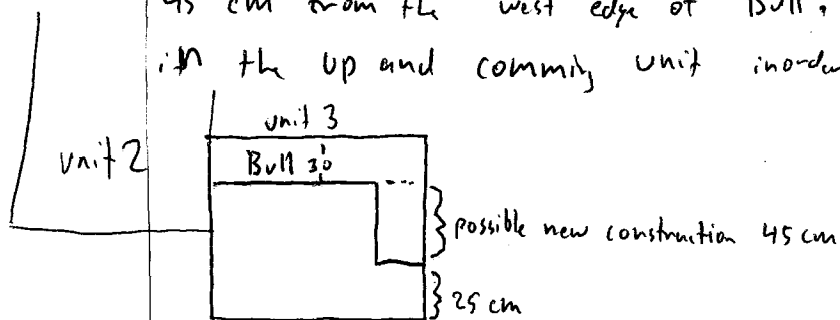 45 cm from the west edge of Bull.
in the up and comming unit
unit 3
unit 2
Bull 30
possible new construction 45 cm
25 cm